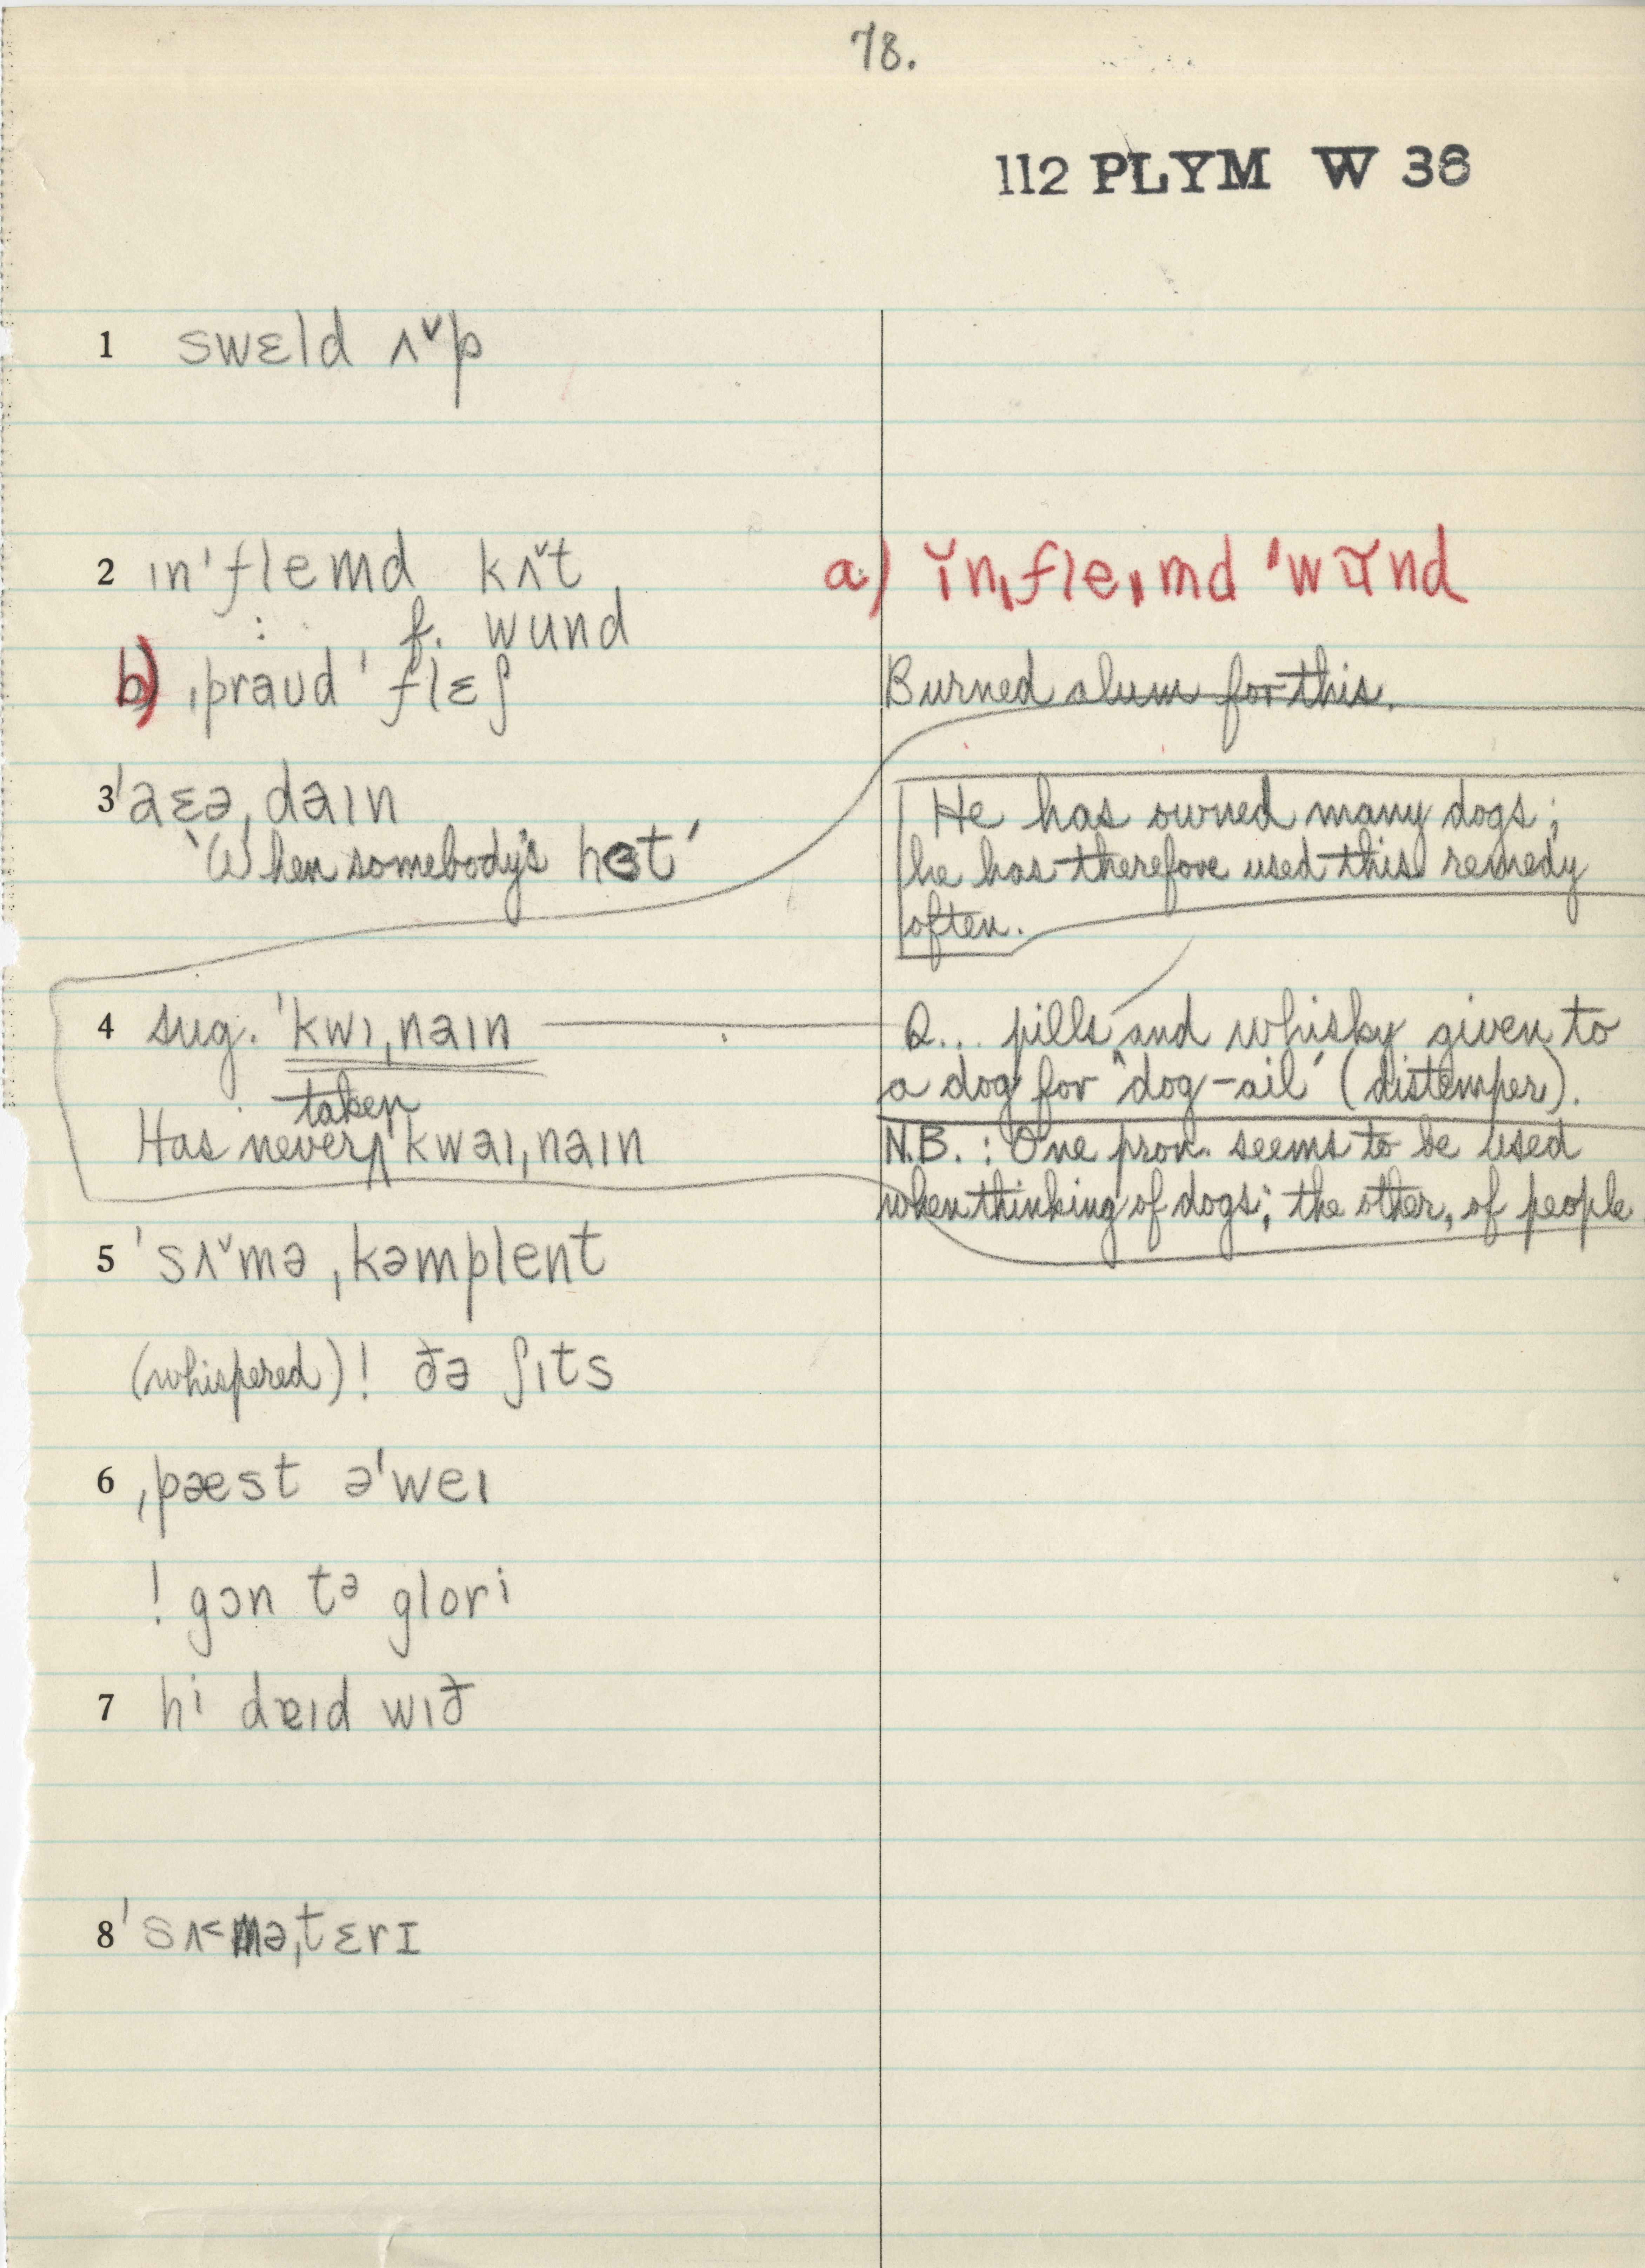 78.
112 PLYM W 38
1 swɛld ʌ˅p
2 ɪn'flemd kʌ˅t
: f. wund
a) ĭnˌfleˌmd 'wŭnd
b) ˌpraʊd 'flɛʃ
Burned alum for this.
3 'aɛəˌdaɪn
'When somebody's hɵt'
He has owned many dogs;
he has therefore used this remedy
often.
4 sug. 'kwɪˌnaɪn
Q... pills and whisky given to
a dog for "dog-ail" (distemper).
taken
Has never ʌ kwaɪˌnaɪn
N.B.: One pron. seems to be used
when thinking of dogs; the other, of people
5 'sʌ˅mə ˌkəmplent
(whispered)! ðə ʃɪts
6 ˌpæst ə'weɪ
! gɔn tə glori
7 hi dɐɪd wɪð
8 'sʌ˂məˌtɛrɪ